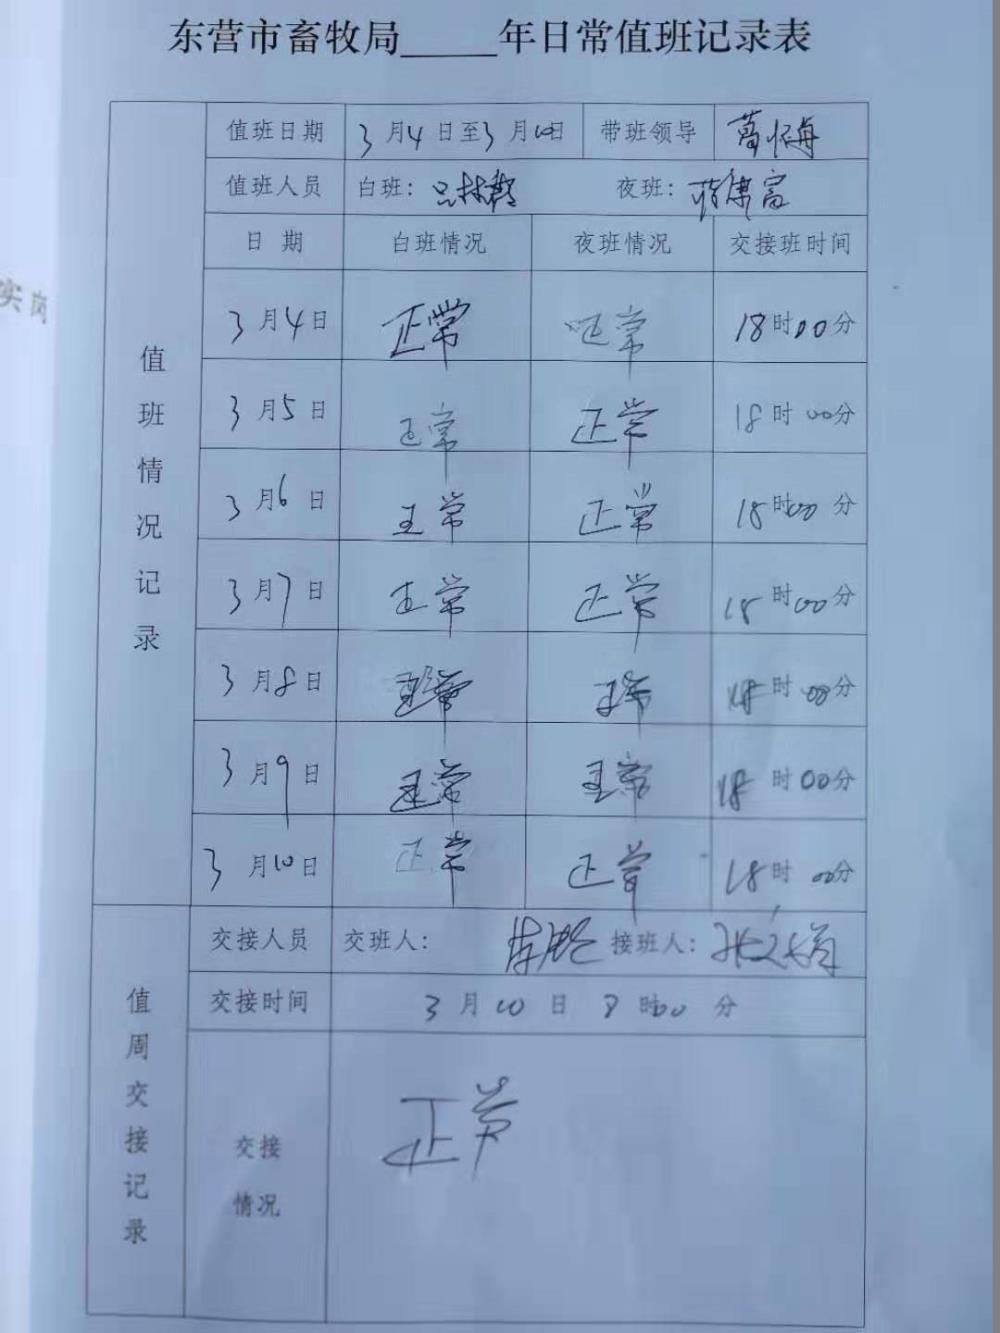 东营市畜牧局_____年日常值班记录表
实岗
值班日期 3月4日至3月10日 带班领导
值班人员 白班： 夜班：
日期 白班情况 夜班情况 交接班时间
3月4日 正常 正常 18时00分
3月5日 正常 正常 18时00分
3月6日 正常 正常 18时00分
3月7日 正常 正常 18时00分
3月8日 正常 正常 18时00分
3月9日 正常 正常 18时00分
3月10日 正常 正常 18时00分
值班情况记录
交接人员 交班人： 接班人：
交接时间 3月10日8时00分
值周交接记录
交接
情况
正常